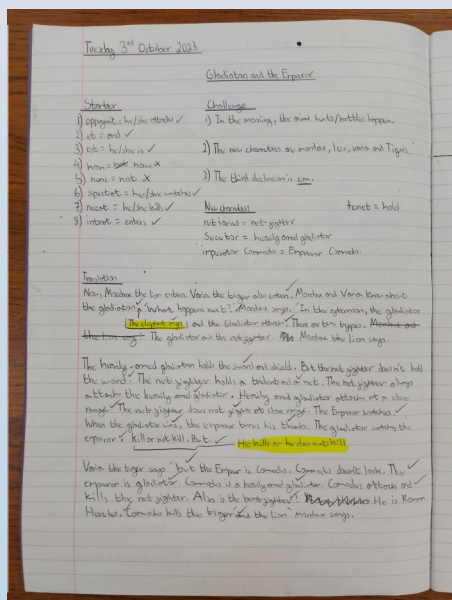 Tuesday 3rd October 2023
Gladiators and the Emperor
Starter
Challenge
1) oppugnat = he/she attacks ✓
1) In the morning, the animal hunts/battles happen.
2) et = and ✓
3) est = he/she is ✓
2) The new characters are mordax, leo, varia and Tigris.
4) non = now x
5) nunc = not x
3) The third declension is em.
6) spectat = he/she watches ✓
7) necat = he/she kills ✓
New characters
tenet = hold
8) intrat = enters ✓
retiarius = net-fighter
Secutor = heavily armed gladiator
imperator Commodus = Emperor Commodus.
Translation
Now, Mordax the lion enters. Varia the tiger also enters. Mordax and Varia know about
the gladiators. 'What happens next?' Mordax says. 'In the afternoon, the gladiator
The elephant says and the Gladiator attack. There are two types.
The gladiator and the net-fighter. Mordax the lion says.
The heavily-armed gladiator holds the sword and shield. But the net fighter doesn't hold
the sword. The net fighter holds a trident and net. The net fighter always
attacks the heavily armed gladiator. Heavily armed gladiator attacks at a close
range. The net fighter does not fight at close range. The Emperor watches.
When the gladiator wins, the emperor turns his thumb. The gladiator watches the
emperor. Kill or not kill. But. He kills or he does not kill
Varia the tiger says 'but the Emperor is Commodus. Commodus doesn't look. The
emperor is gladiator. Commodus is a heavily armed gladiator. Commodus attacks and
kills the net fighter. Also is the best fighter! He is Roman
Hercules. Commodus kills the tiger and the lion' Mordax says.